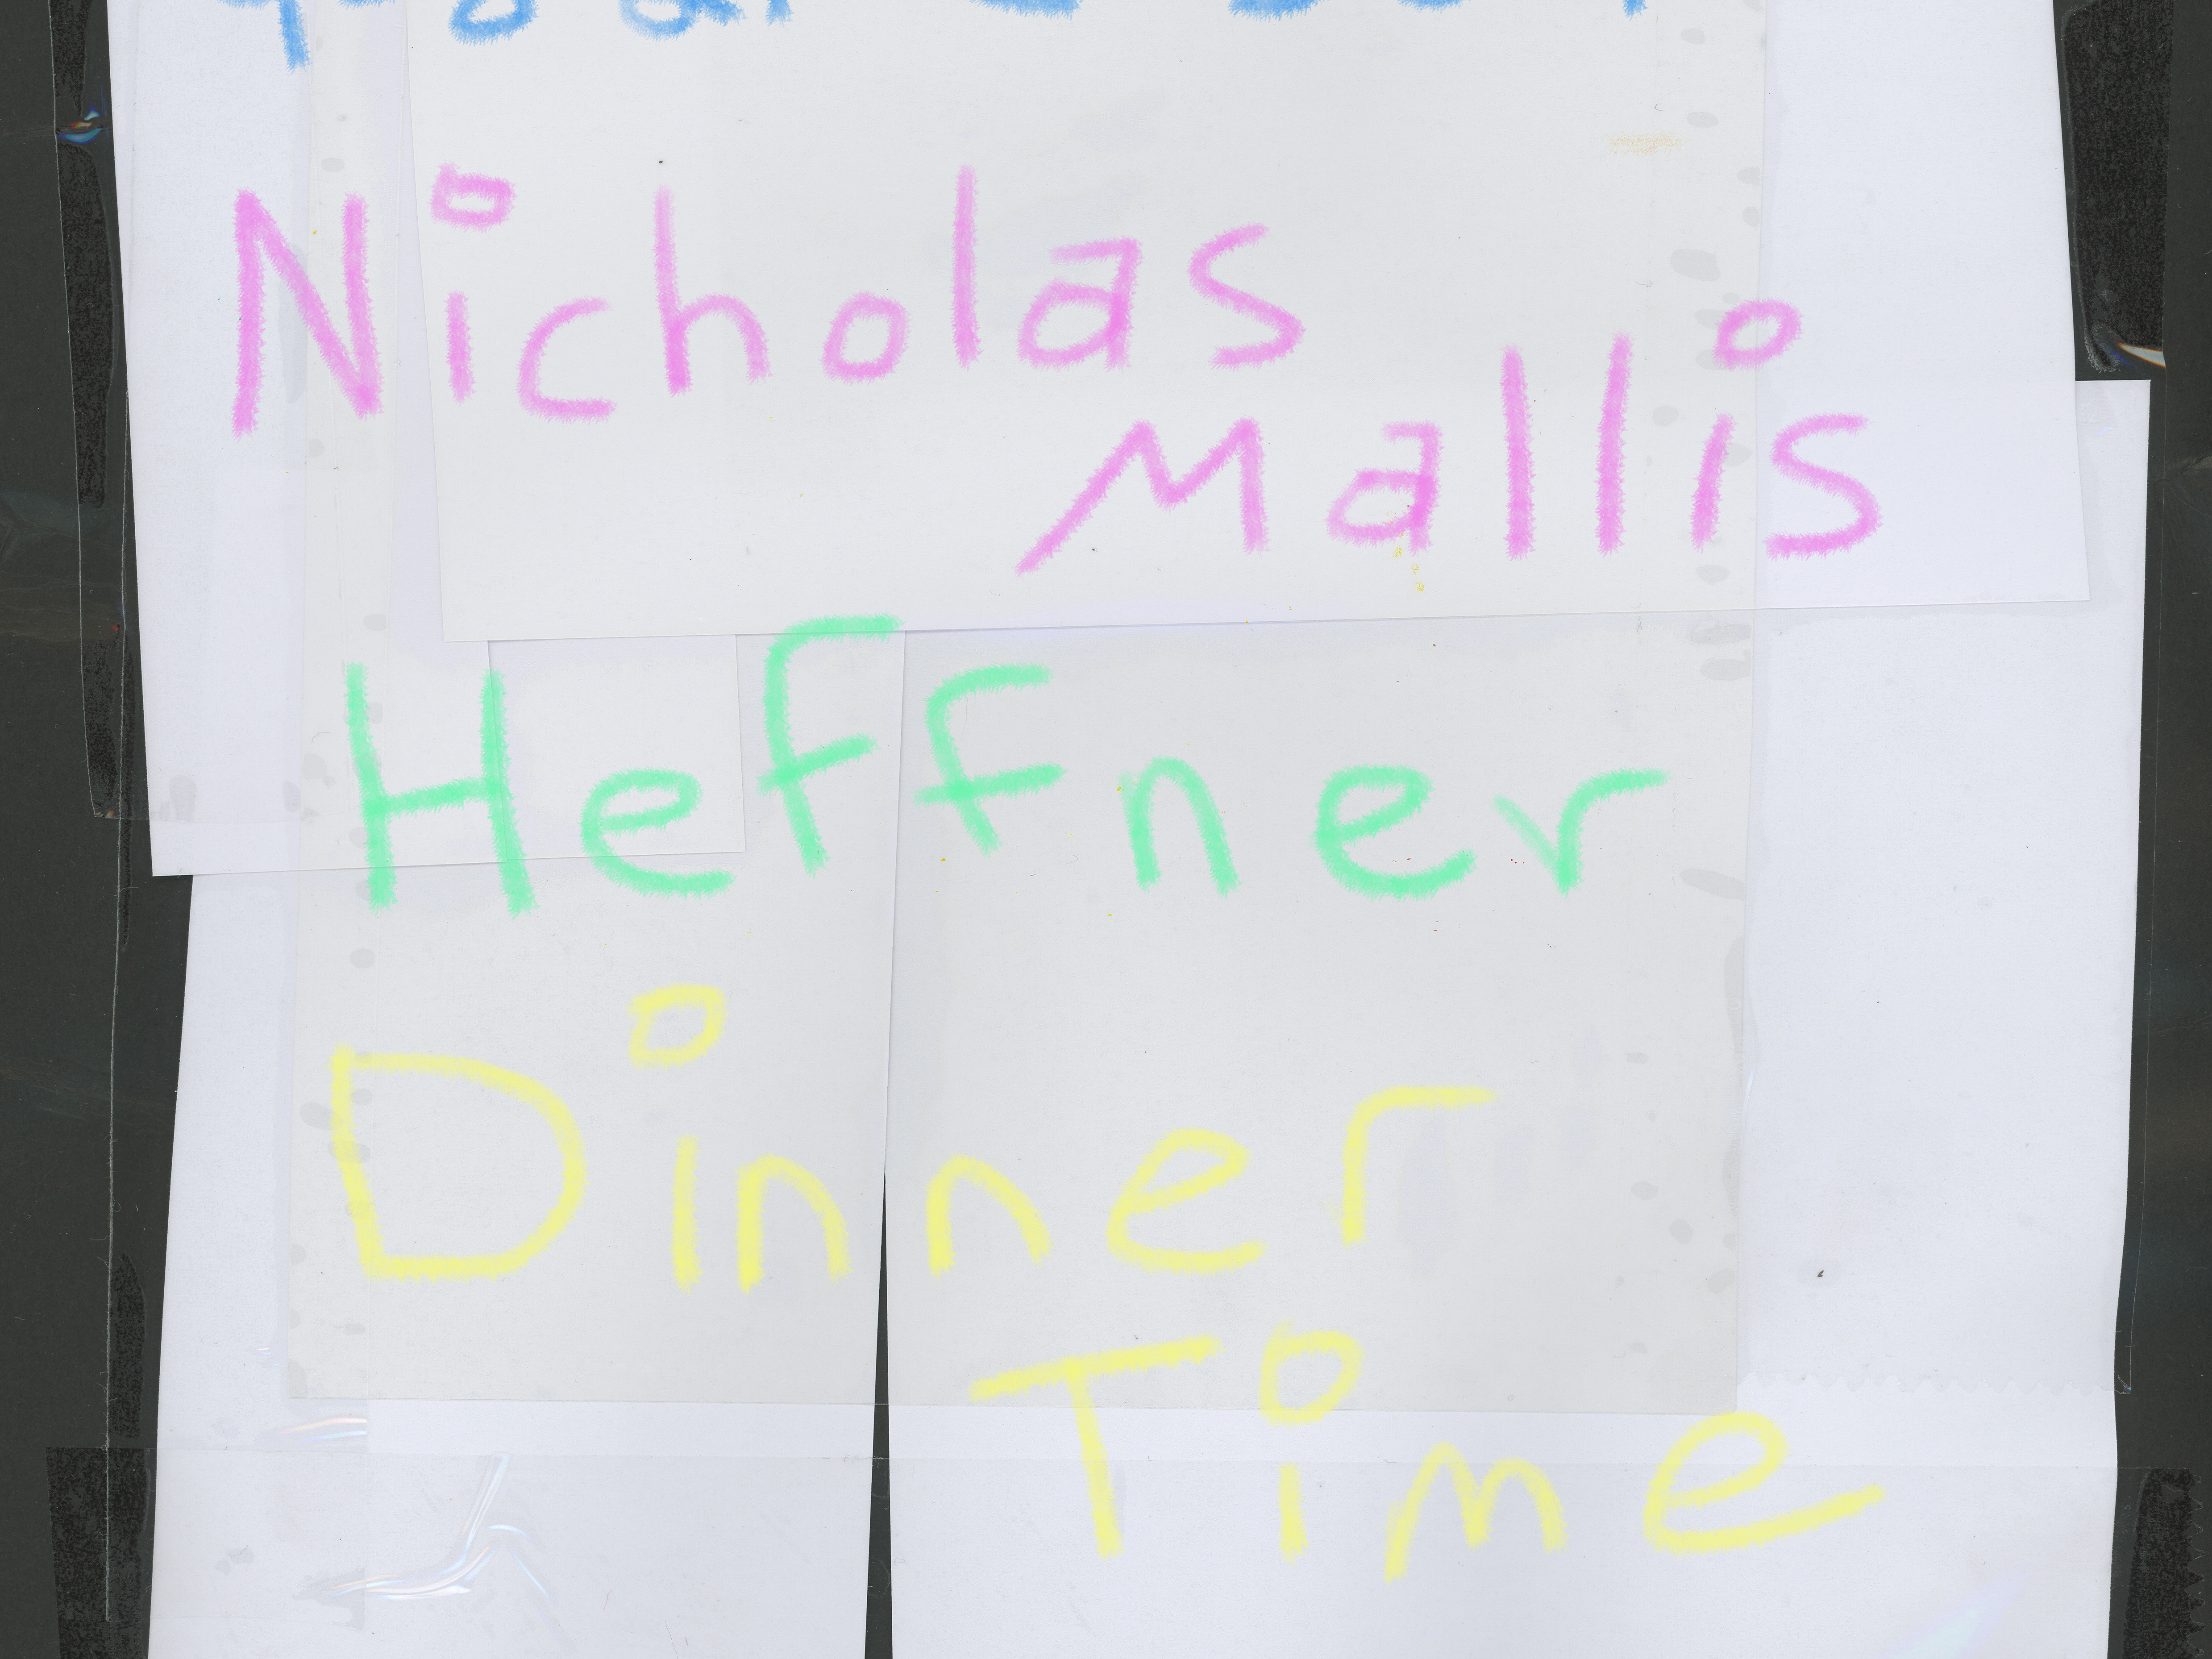 Nicholas
Mallis
Heffner
Dinner
Time